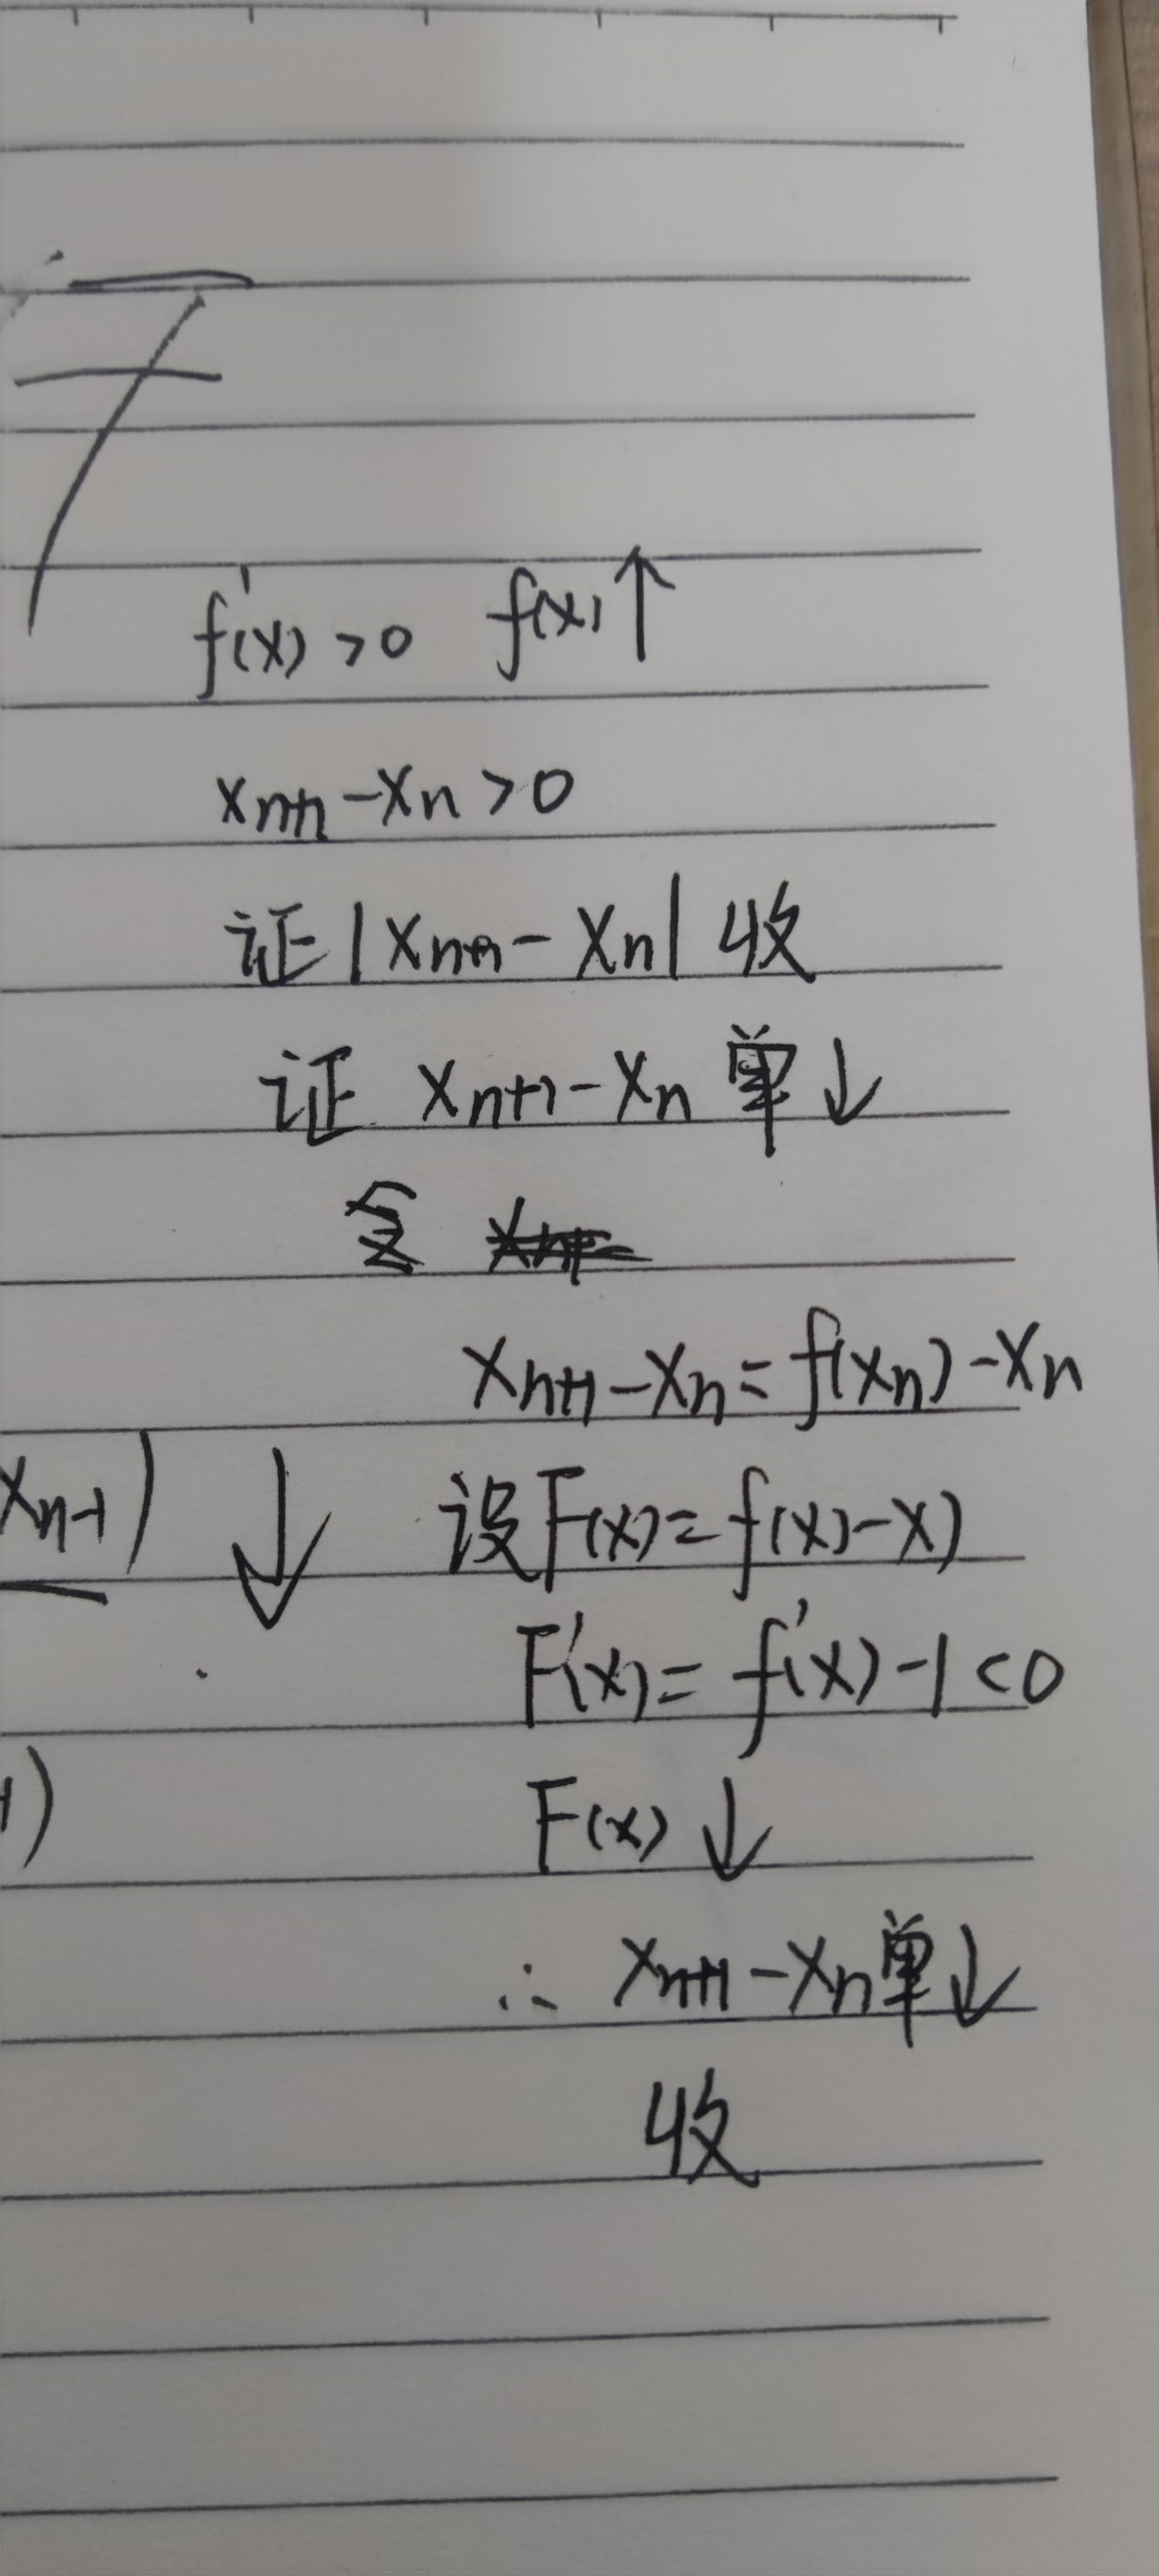 f'(x) >0 f(x)↑
xn+1 -xn >0
证|xn+1 - xn| 收
证 xn+1 -xn 单↓
令
xn+1 -xn = f(xn) -xn
xn-1) ↓ 设F(x) = f(x) -x)
F'(x) = f'(x) -1 <0
1) F(x)↓
∴ xn+1 -xn单↓
收